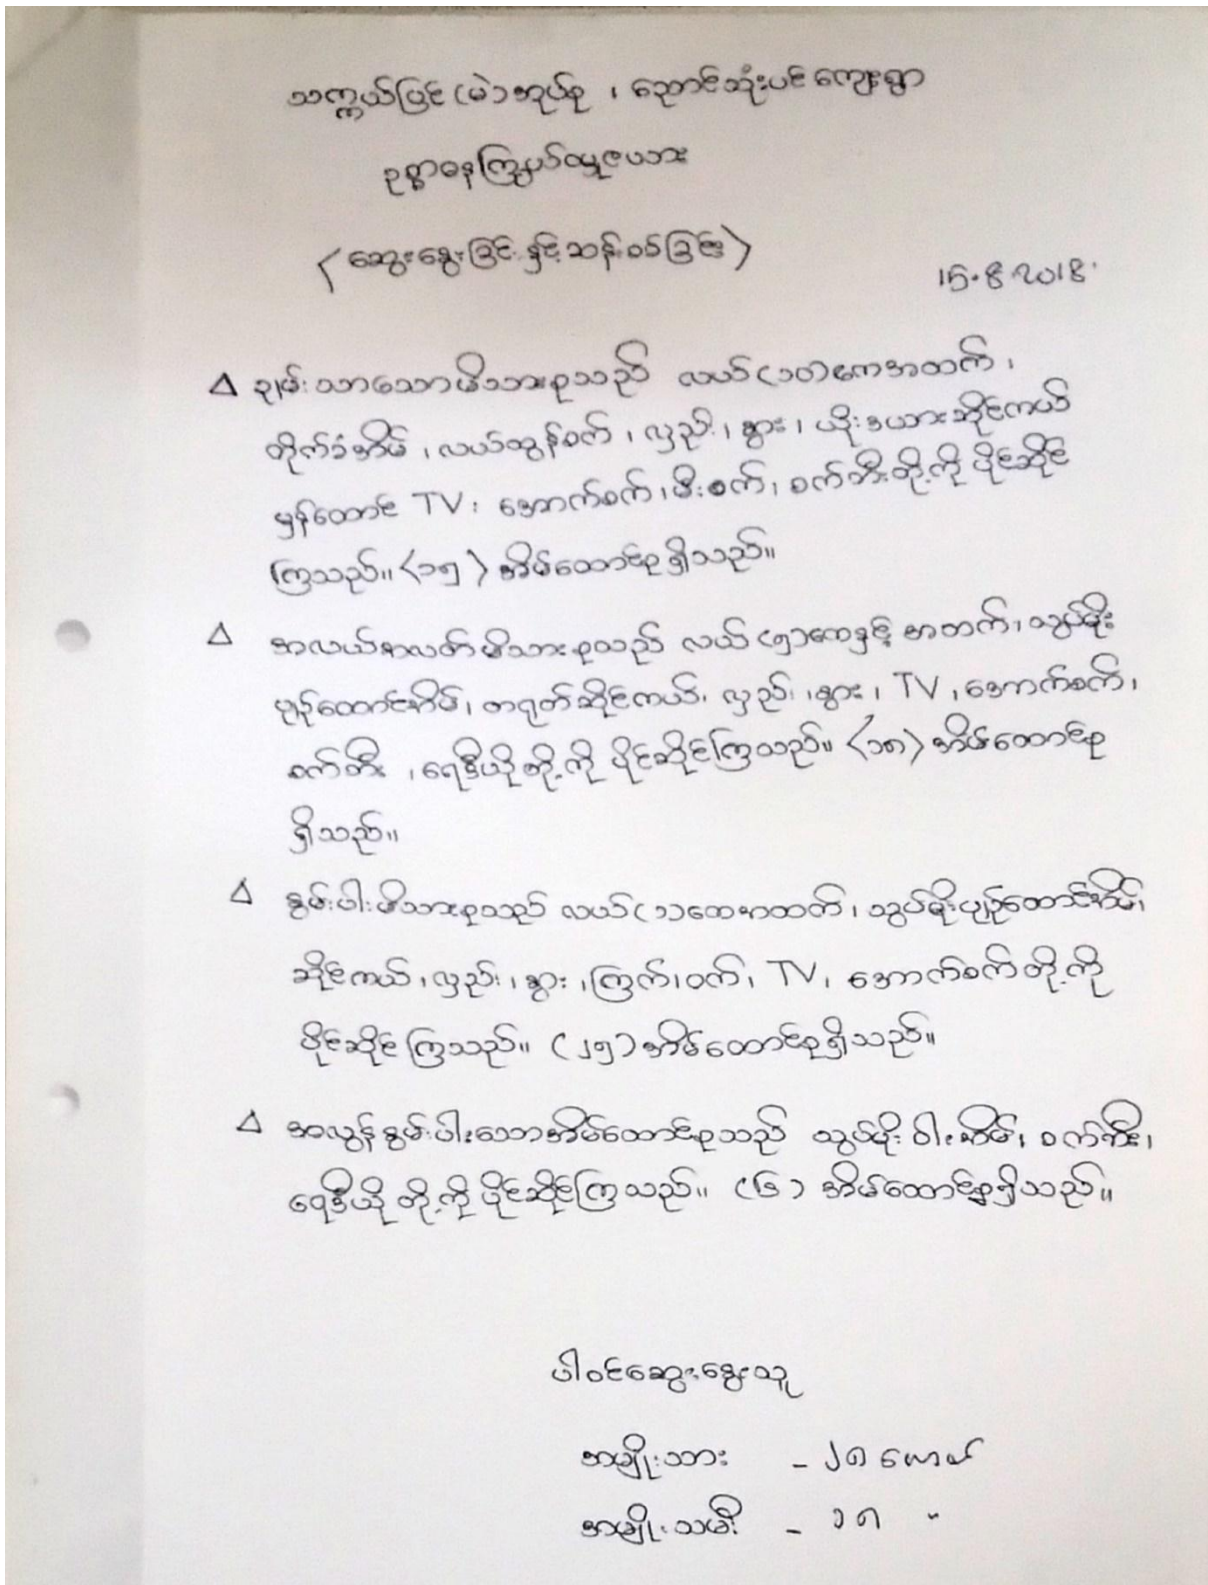 သက္ကယ်ပြင် (မဲ) အုပ်စု ၊ ညောင်သုံးပင် ကျေးရွာ
ဥစ္စာဓနကြွယ်ဝမှုဇယား
〈 ဆွေးနွေးခြင်း နှင့် ဆန်းစစ်ခြင်း 〉
15.8.2018.
∆ ချမ်းသာသောမိသားစုသည် လယ် (၁၀) ဧကအထက် ၊
တိုက်ခံအိမ် ၊ လယ်ထွန်စက် ၊ လှည်း ၊ နွား ၊ ယိုးဒယားဆိုင်ကယ်
မှန်တောင် TV ၊ အောက်စက် ၊ မီးစက် ၊ စက်ဘီးတို့ကို ပိုင်ဆိုင်
ကြသည်။ 〈၁၅〉 အိမ်ထောင်စု ရှိသည်။
∆ အလယ်အလတ်မိသားစုသည် လယ် (၅) ဧကနှင့် အထက် ၊ သွပ်မိုး
ပျဉ်ထောင်အိမ် ၊ တရုတ်ဆိုင်ကယ် ၊ လှည်း ၊ နွား ၊ TV ၊ အောက်စက် ၊
စက်ဘီး ၊ ရေဒီယို တို့ကို ပိုင်ဆိုင်ကြသည်။ 〈၁၈〉 အိမ်ထောင်စု
ရှိသည်။
∆ နွမ်းပါးမိသားစုသည် လယ် (၁) ဧကအထက် ၊ သွပ်မိုးပျဉ်ထောင်အိမ် ၊
ဆိုင်ကယ် ၊ လှည်း ၊ နွား ၊ ကြက် ၊ ဝက် ၊ TV ၊ အောက်စက် တို့ကို
ပိုင်ဆိုင် ကြသည်။ (၂၅) အိမ်ထောင်စုရှိသည်။
∆ အလွန်နွမ်းပါးသောအိမ်ထောင်စုသည် သွပ်မိုး ဝါးအိမ် ၊ စက်ဘီး ၊
ရေဒီယို တို့ကို ပိုင်ဆိုင်ကြသည်။ (၆) အိမ်ထောင်စုရှိသည်။
ပါဝင်ဆွေးနွေးသူ
အမျိုးသား - ၂၈ ယောက်
အမျိုးသမီး - ၁၈ "